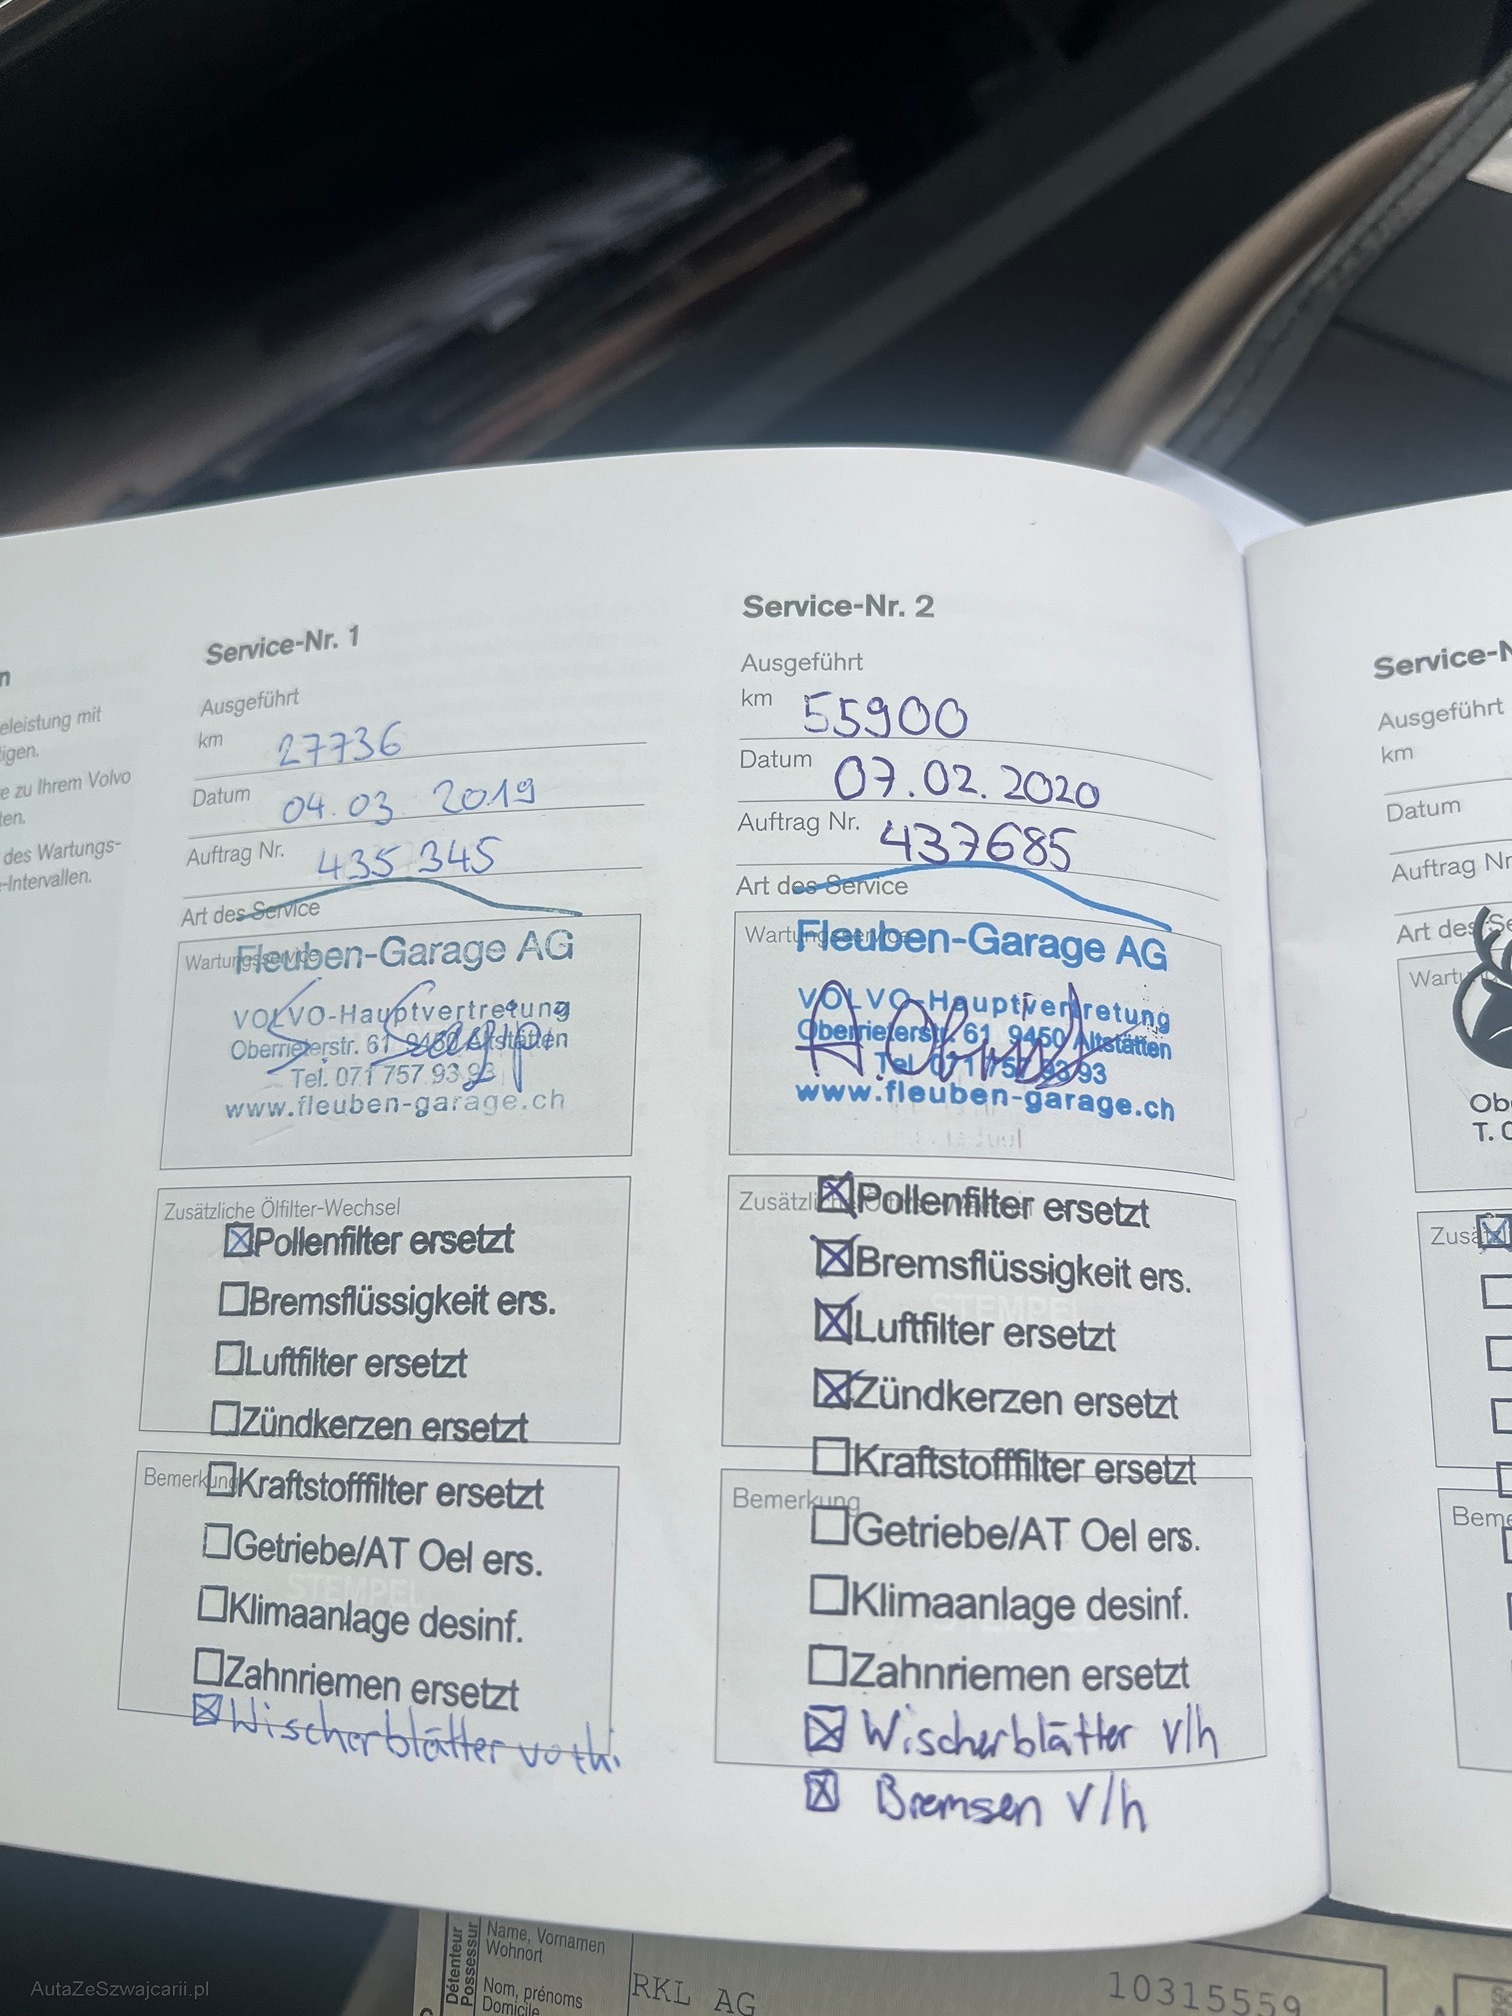 n
eleistung mit
igen.
e zu Ihrem Volvo
ten.
des Wartungs-
-Intervallen.
Service-Nr. 1
Ausgeführt
km 27736
Datum 04.03 2019
Auftrag Nr. 435 345
Art des Service
Wartungsservice
Fleuben-Garage AG
VOLVO-Hauptvertretung
Oberrieterstr. 61 9450 Altstätten
Tel. 071 757 93 93
www.fleuben-garage.ch
Zusätzliche Ölfilter-Wechsel
☒Pollenfilter ersetzt
☐Bremsflüssigkeit ers.
☐Luftfilter ersetzt
☐Zündkerzen ersetzt
Bemerkung
☐Kraftstofffilter ersetzt
☐Getriebe/AT Oel ers.
STEMPEL
☐Klimaanlage desinf.
☐Zahnriemen ersetzt
☒Wischerblätter
Service-Nr. 2
Ausgeführt
km 55900
Datum 07.02.2020
Auftrag Nr. 437685
Art des Service
Wartungsservice
Fleuben-Garage AG
VOLVO-Hauptvertretung
Oberrieterstr. 61 9450 Altstätten
Tel. 071 757 93 93
www.fleuben-garage.ch
Zusätzl
☒Pollenfilter ersetzt
☒Bremsflüssigkeit ers.
STEMPEL
☒Luftfilter ersetzt
☒Zündkerzen ersetzt
☐Kraftstofffilter ersetzt
Bemerkung
☐Getriebe/AT Oel ers.
☐Klimaanlage desinf.
☐Zahnriemen ersetzt
☒ Wischerblätter v/h
☒ Bremsen v/h
Service-N
Ausgeführt
km
Datum
Auftrag Nr
Art des Se
Wart
Ob
T. 0
Zusä
Beme
Détenteur
Possesseur
Name, Vornamen
Wohnort
Nom, prénoms
Domicile
RKL AG
10315559
AutaZeSzwajcarii.pl